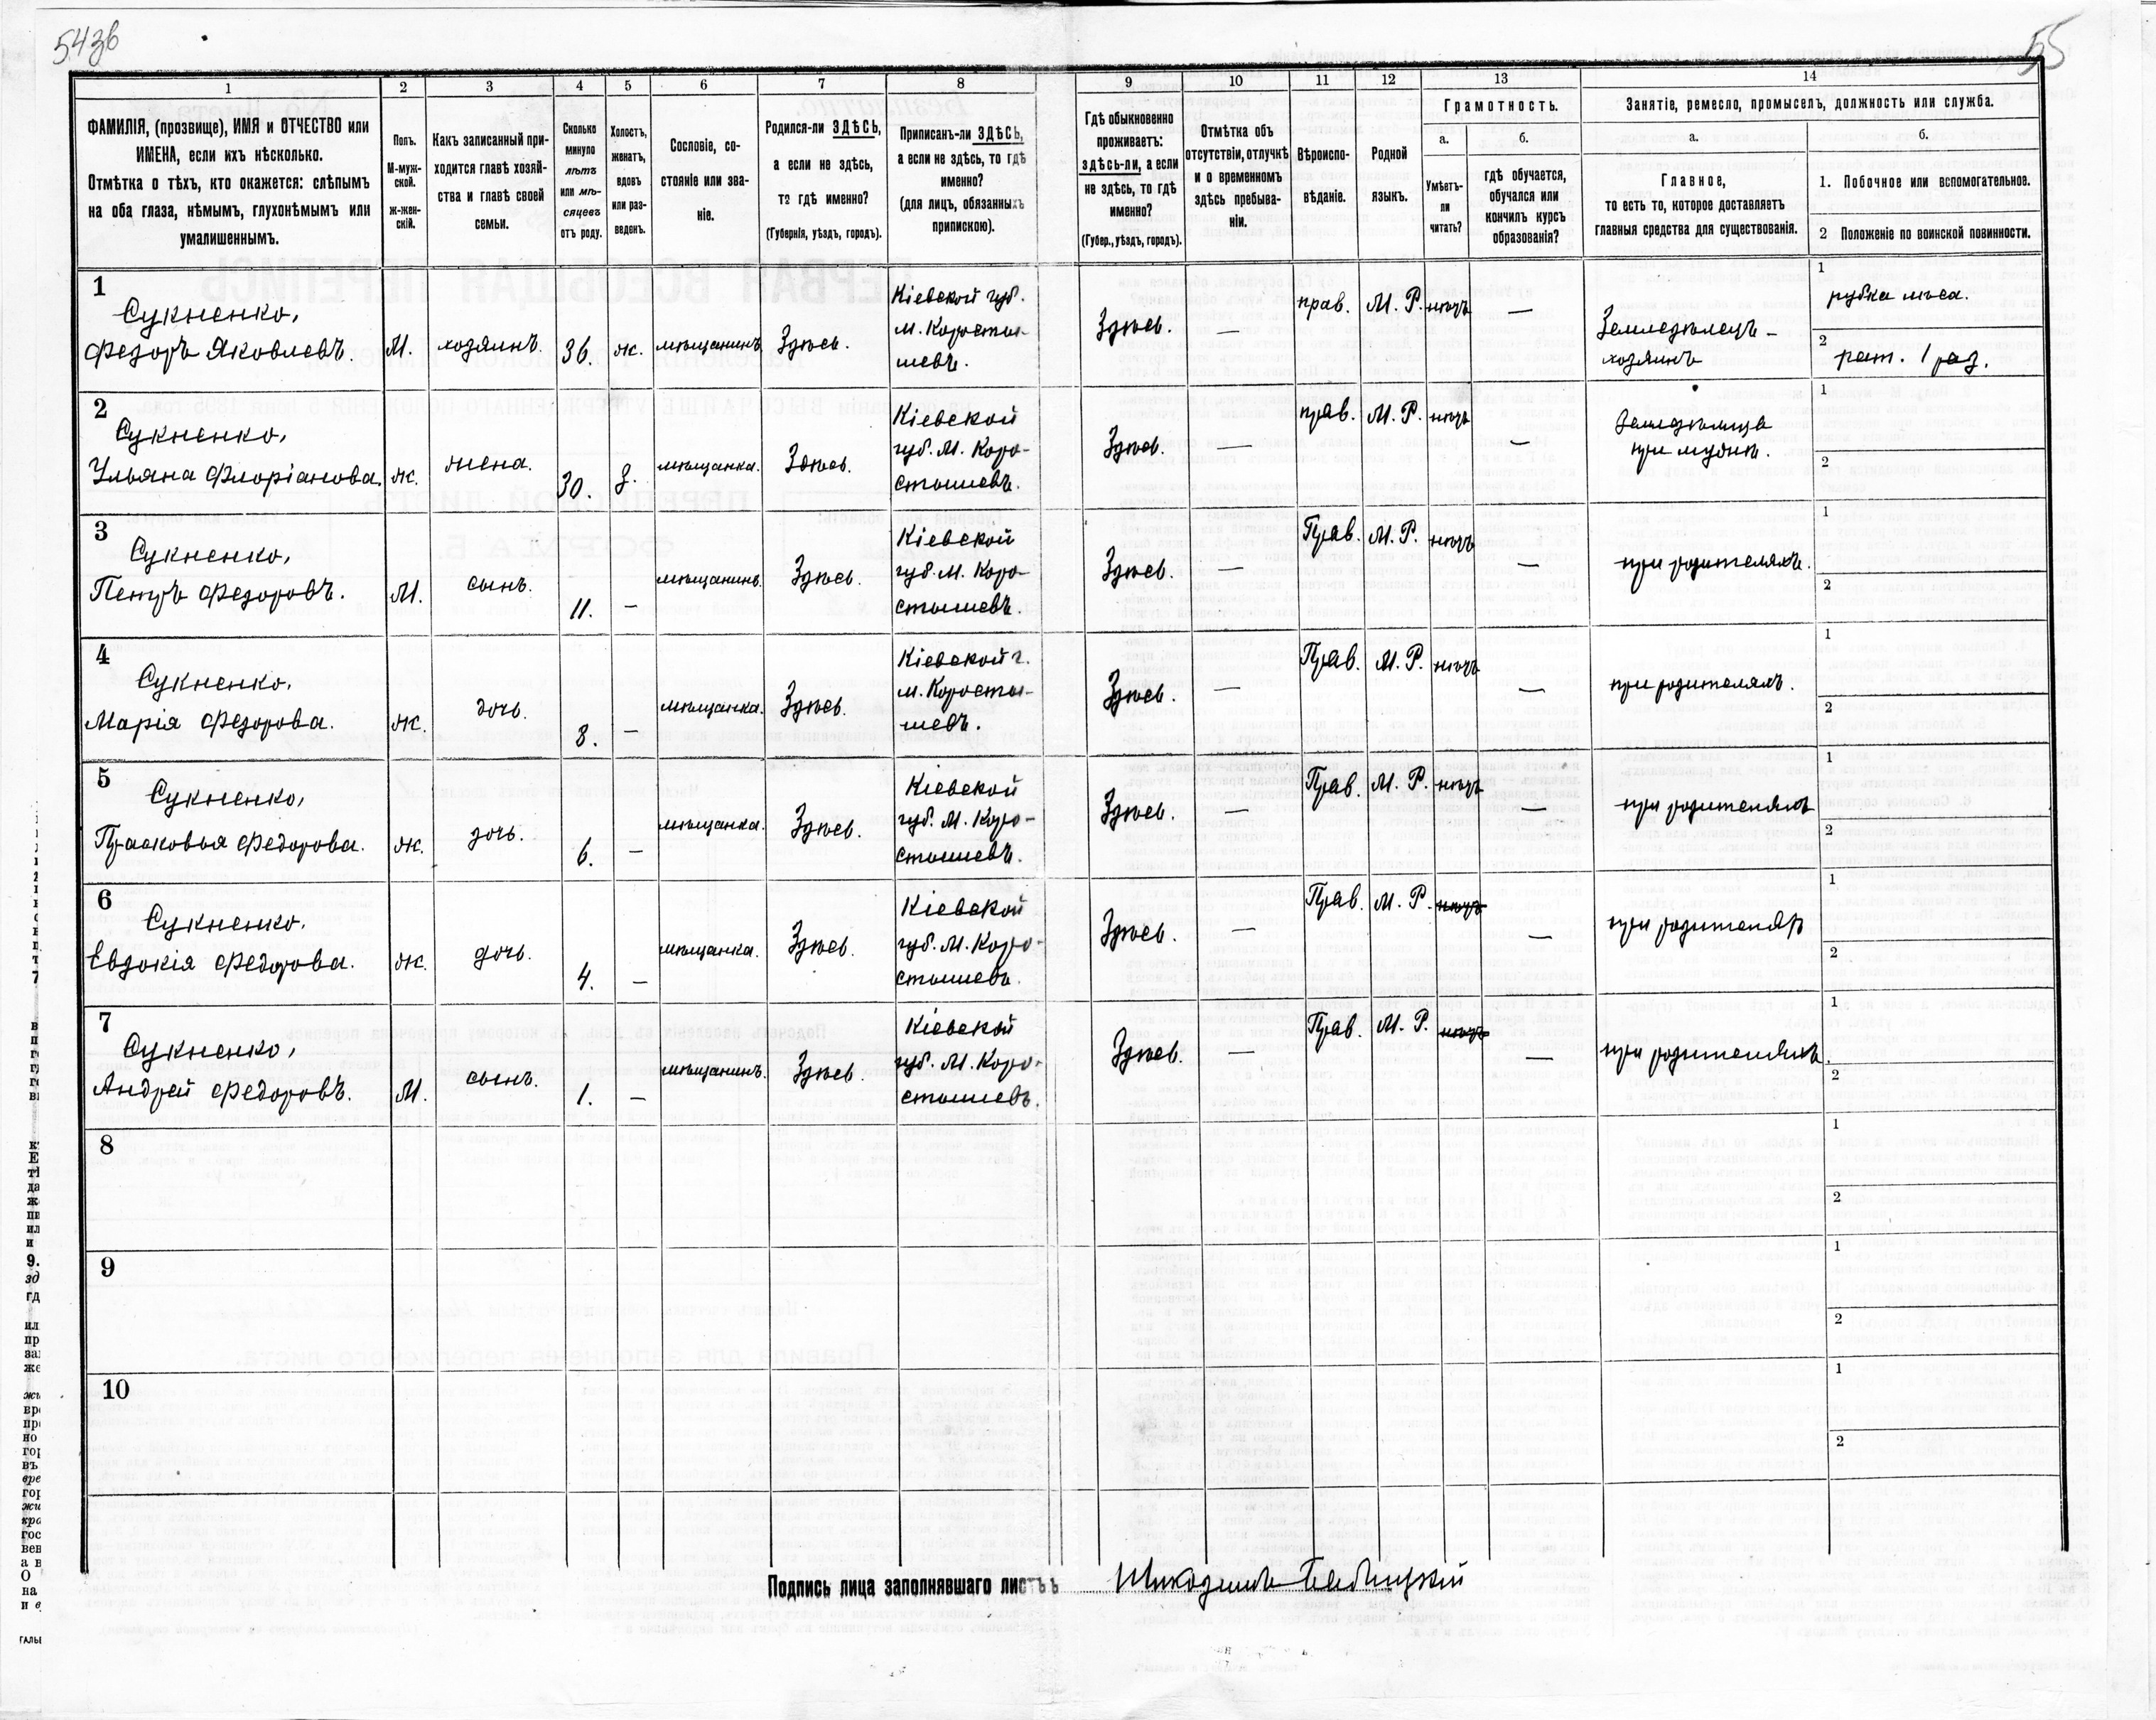 543в
55
1
2
3
4
5
6
7
8
9
10
11
12
13
14
ФАМИЛІЯ, (прозвище), ИМЯ и ОТЧЕСТВО или
ИМЕНА, если ихъ нѣсколько.
Отмѣтка о тѣхъ, кто окажется: слѣпымъ
на оба глаза, нѣмымъ, глухонѣмымъ или
умалишеннымъ.
Полъ.
М-муж-
ской.
ж-жен-
скій.
Какъ записанный при-
ходится главѣ хозяй-
ства и главѣ своей
семьи.
Сколько
минуло
лѣтъ
или мѣ-
сяцевъ
отъ роду.
Холостъ,
женатъ,
вдовъ
или раз-
веденъ.
Сословіе, со-
стояніе или зва-
ніе.
Родился-ли ЗДѢСЬ,
а если не здѣсь,
то гдѣ именно?
(Губернія, уѣздъ, городъ).
Приписанъ-ли ЗДѢСЬ,
а если не здѣсь, то гдѣ
именно?
(для лицъ, обязанныхъ
припискою).
Гдѣ обыкновенно
проживаетъ:
здѣсь-ли, а если
не здѣсь, то гдѣ
именно?
(Губер., уѣздъ, городъ).
Отмѣтка объ
отсутствіи, отлучкѣ
и о временномъ
здѣсь пребыва-
ніи.
Вѣроиспо-
вѣданіе.
Родной
языкъ.
Грамотность.
а.
Умѣетъ-
ли
читать?
б.
гдѣ обучается,
обучался или
кончилъ курсъ
образованія?
Занятіе, ремесло, промыселъ, должность или служба.
а.
Главное,
то есть то, которое доставляетъ
главныя средства для существованія.
б.
1. Побочное или вспомогательное.
2 Положеніе по воинской повинности.
1
Сукненко,
Федоръ Яковлевъ.
М.
хозяинъ.
36.
ж.
мѣщанинъ
Здѣсь.
Кіевской губ.
м. Коросты-
шевъ.
Здѣсь.
—
прав.
М. Р.
нѣтъ
—
Земледѣлецъ –
хозяинъ
1
рубка лѣса.
2
рат. 1 раз.
2
Сукненко,
Ульяна Флоріанова.
ж.
жена.
30.
з.
мѣщанка.
Здѣсь.
Кіевской
губ. М. Коро-
стышевъ.
Здѣсь.
—
прав.
М. Р.
нѣтъ
—
при мужѣ.
1
2
3
Сукненко,
Петръ Федоровъ.
М.
сынъ.
11.
—
мѣщанинъ.
Здѣсь.
Кіевской
губ. М. Коро-
стышевъ.
Здѣсь.
—
Прав.
М. Р.
нѣтъ
—
при родителяхъ.
1
2
4
Сукненко.
Марія Федорова.
ж.
дочь.
8.
—
мѣщанка.
Здѣсь.
Кіевской г.
м. Коросты-
шевъ.
Здѣсь.
—
Прав.
М. Р.
нѣтъ
—
при родителяхъ.
1
2
5
Сукненко,
Прасковья Федорова.
ж.
дочь.
6.
—
мѣщанка.
Здѣсь.
Кіевской
губ. М. Коро-
стышевъ.
Здѣсь.
—
Прав.
М. Р.
нѣтъ
—
при родителяхъ
1
2
6
Сукненко.
Евдокія Федорова.
ж.
дочь.
4.
—
мѣщанка.
Здѣсь.
Кіевской
губ. М. Коро-
стышевъ.
Здѣсь.
—
Прав.
М. Р.
нѣтъ
—
при родителяхъ
1
2
7
Сукненко,
Андрей Федоровъ.
М.
сынъ.
1.
—
мѣщанинъ.
Здѣсь.
Кіевской
губ. М. Коро-
стышевъ.
Здѣсь.
—
Прав.
М. Р.
нѣтъ
—
при родителяхъ.
1
2
8
1
2
9
1
2
10
1
2
Подпись лица заполнявшаго листъ